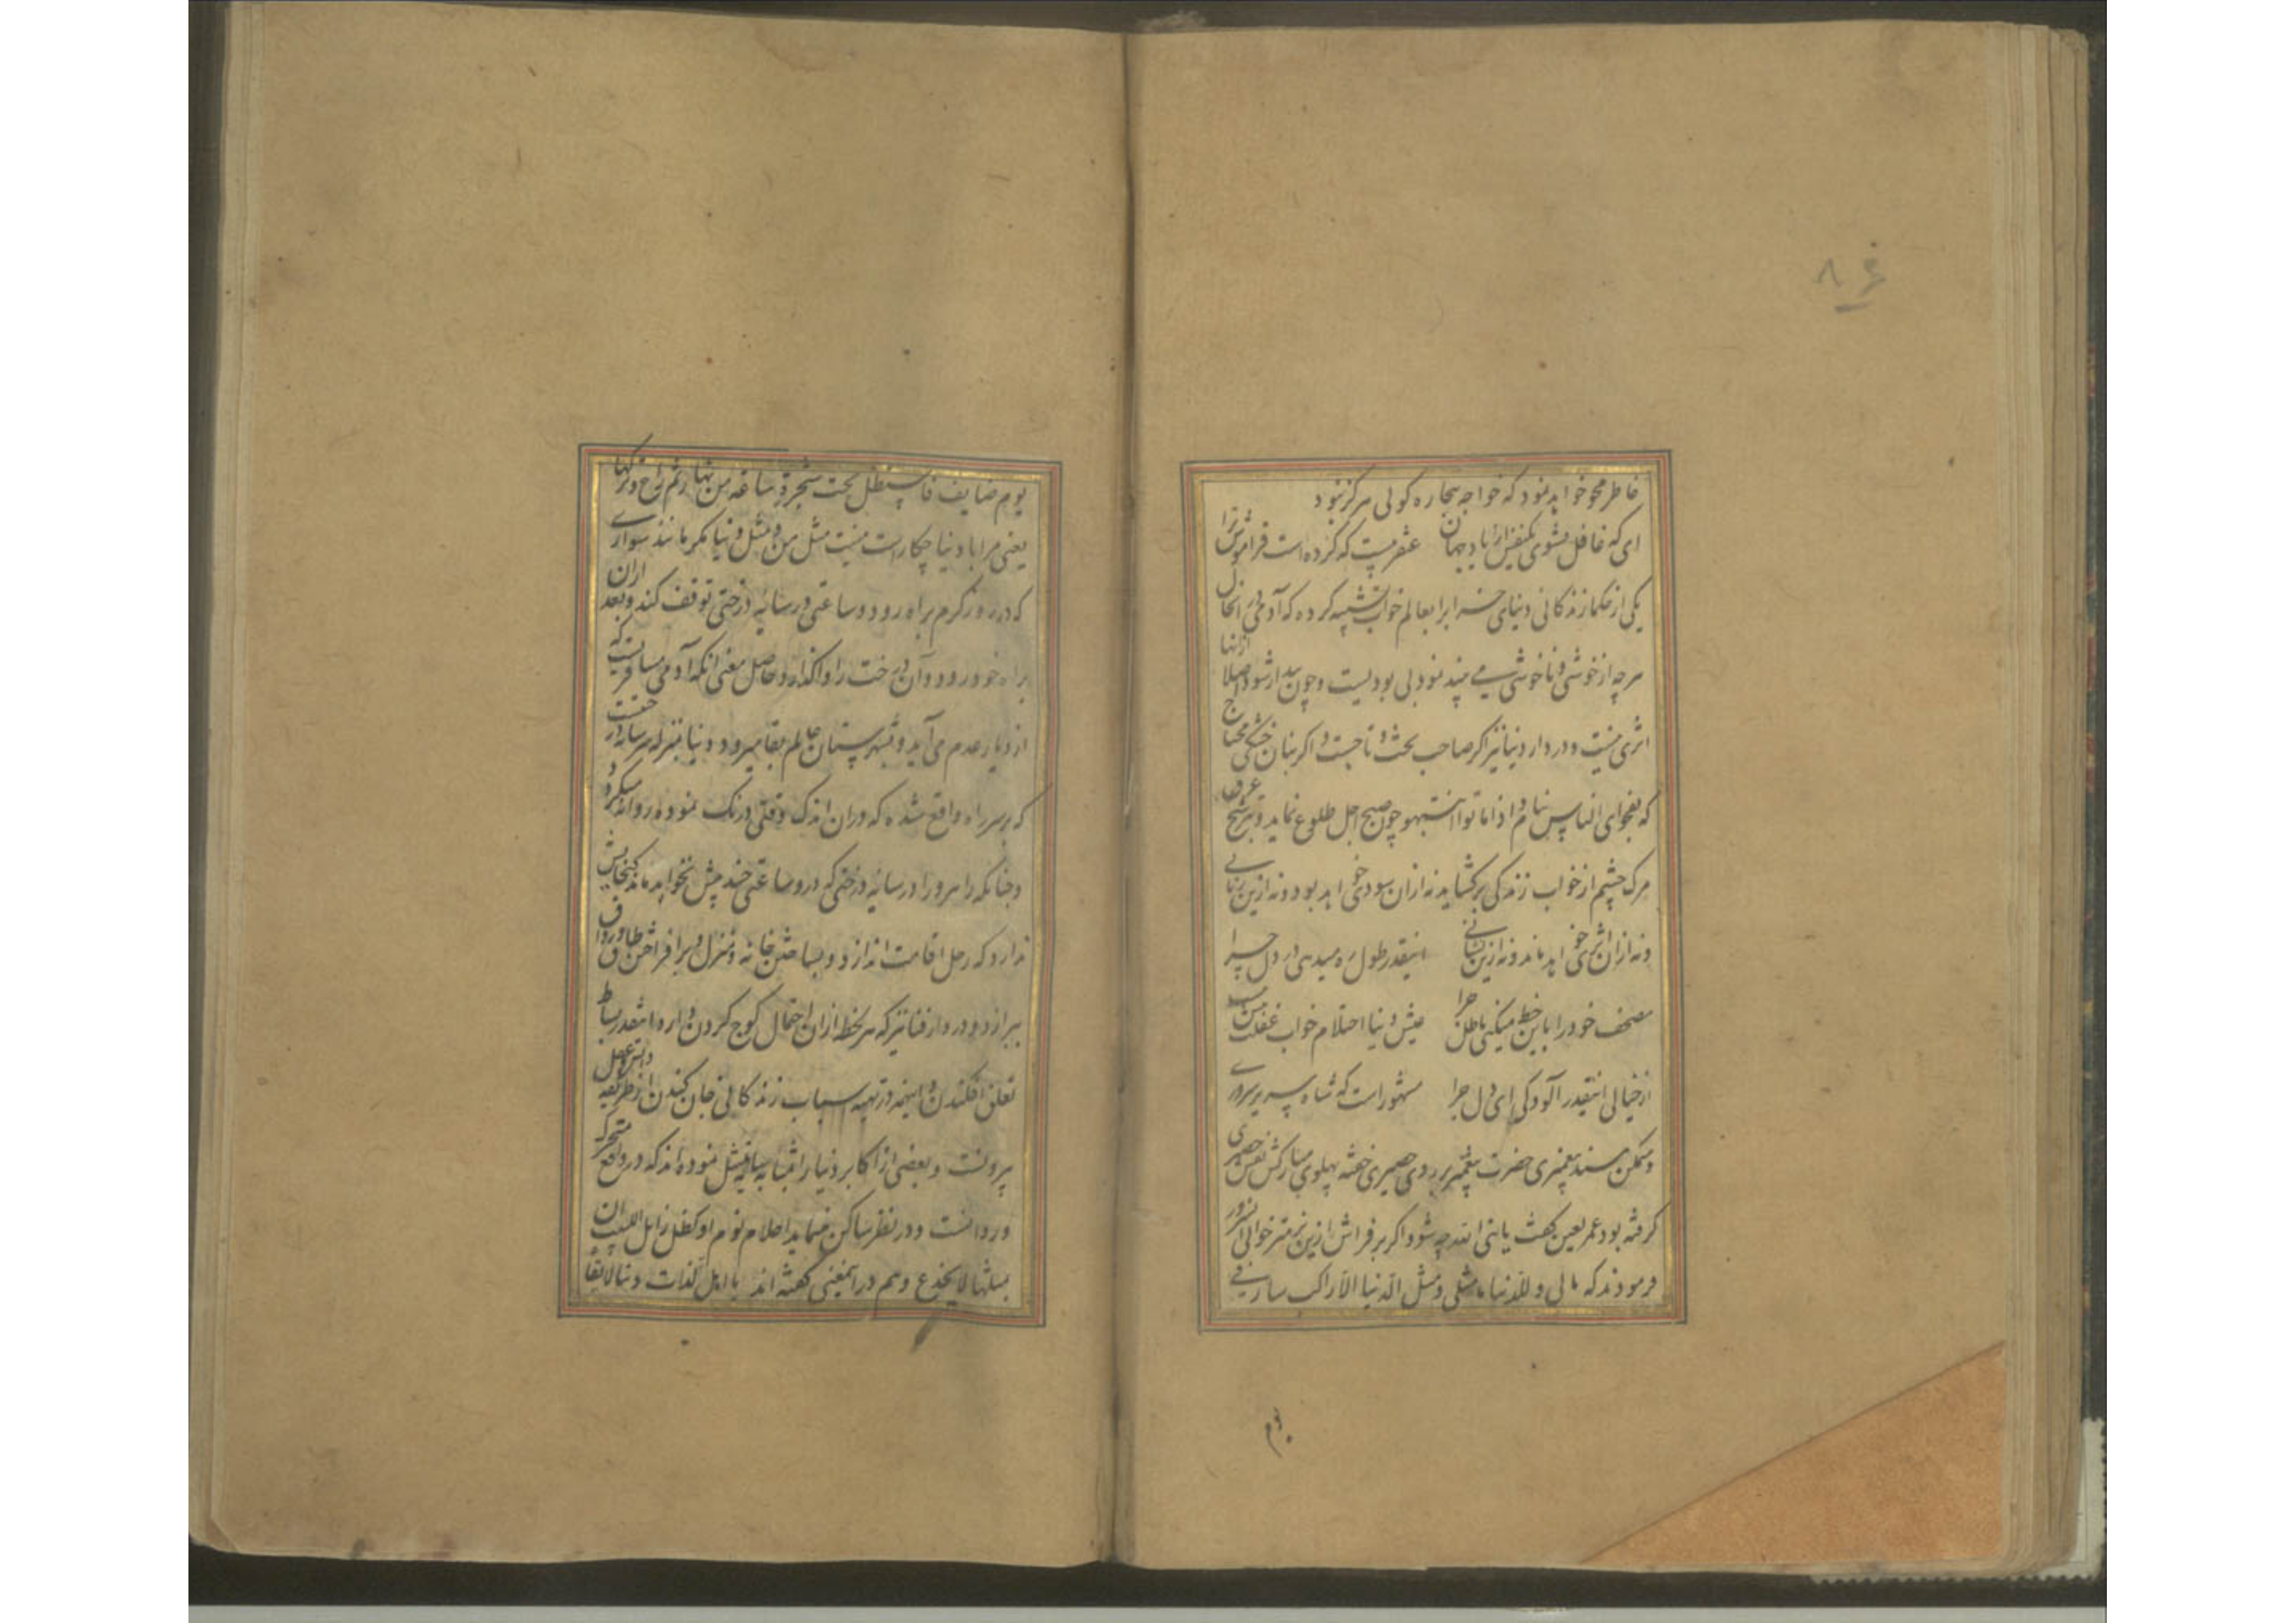 ۸۶
خاطر محو خواهد نمود که خواجه بیچاره کوئی هرکز نبود
ای که غافل نشوی یکنفس از یاد جهان عنقریبست که کرده است فراموش ترا
یکی از حکما زندکانی دنیای خسته را بعالم خواب تشبیه کرده که آدمی در انحال
هرچه از خوشی و ناخوشی می بیند نمود بی بودیست و چون بیدار شود اصلا ازانها
اثری نیست و در دار دنیا نیز اکر صاحب تخت و تاجست و اکر بنان خشکی محتاج
که بفحوای الناس نیام اذا ماتوا انتبهوا چون صبح اجل طلوع نماید و بترشح عرق
مرک چشم از خواب زندکی برکشاید نه ازان سودی خواهد بود و نه ازین زیانی
و نه ازان اثری خواهد ماند و نه ازین نشانی اینقدر طول ره میدهی ای دل چرا
مصحف خود را باین خط میکنی باطل چرا عیش دنیا احتلام خواب غفلت بیش نیست
از خیالی اینقدر آلودکی ای دل چرا مشهور است که شاه سریر سروری
و متمکن مسند پیغمبری حضرت پیغمبر بر روی حصیری خفته پهلوی مبارکش نقش حصیر
کرفته بود عمر بعین کفت یا نبی الله چه شود اکر بر فراش ازین نرمتر خوابی آنسرور
فرمودند که مالی و للدنیا ما مثلی و مثل الدنیا الا راکب سار فی
یوم
یوم صایف فاستظل تحت شجرة ساعة من نهار ثم راح و ترکها
یعنی مرا با دنیا چکار است نیست مثل من و مثل دنیا مکر مانند سواری
که در روز کرم براه رود و ساعتی در سایه درختی توقف کند و بعد ازان
براه خود رود و آن درخت را واکذارد و حاصل معنی آنکه آدمی مسافریست که
از دیار عدم می آید و بشهرستان عالم بقا میرود و دنیا بمنزله سایه درختیست
که بر سر راه واقع شده که دران اندک وقتی درنک نموده روانه میکردد و
چنانکه راهرو را در سایه درختی که درو ساعتی چند بیش نخواهد ماند کنجایش
ندارد که رحل اقامت اندازد و بساختن خانه و منزل و برافراشتن طاق و رواق
پردازد و در دار فنا نیز که هر لحظه ازان احتمال کوچ کردن دارد اینقدر بساط
تعلق افکندن و اینهمه در تهیه اسباب زندکانی جان کندن از طریقه دانش و عقل
بیرونست و بعضی از اکابر دنیا را بسایه تمثیل نموده اند که در واقع متحرک
و روانست و در نظر ساکن مینماید احلام نوم او کظل زایل ان اللبیب
بمثلها لا یخدع و هم در اینمعنی کفته اند یا اهل لذات دنیا لا بقا